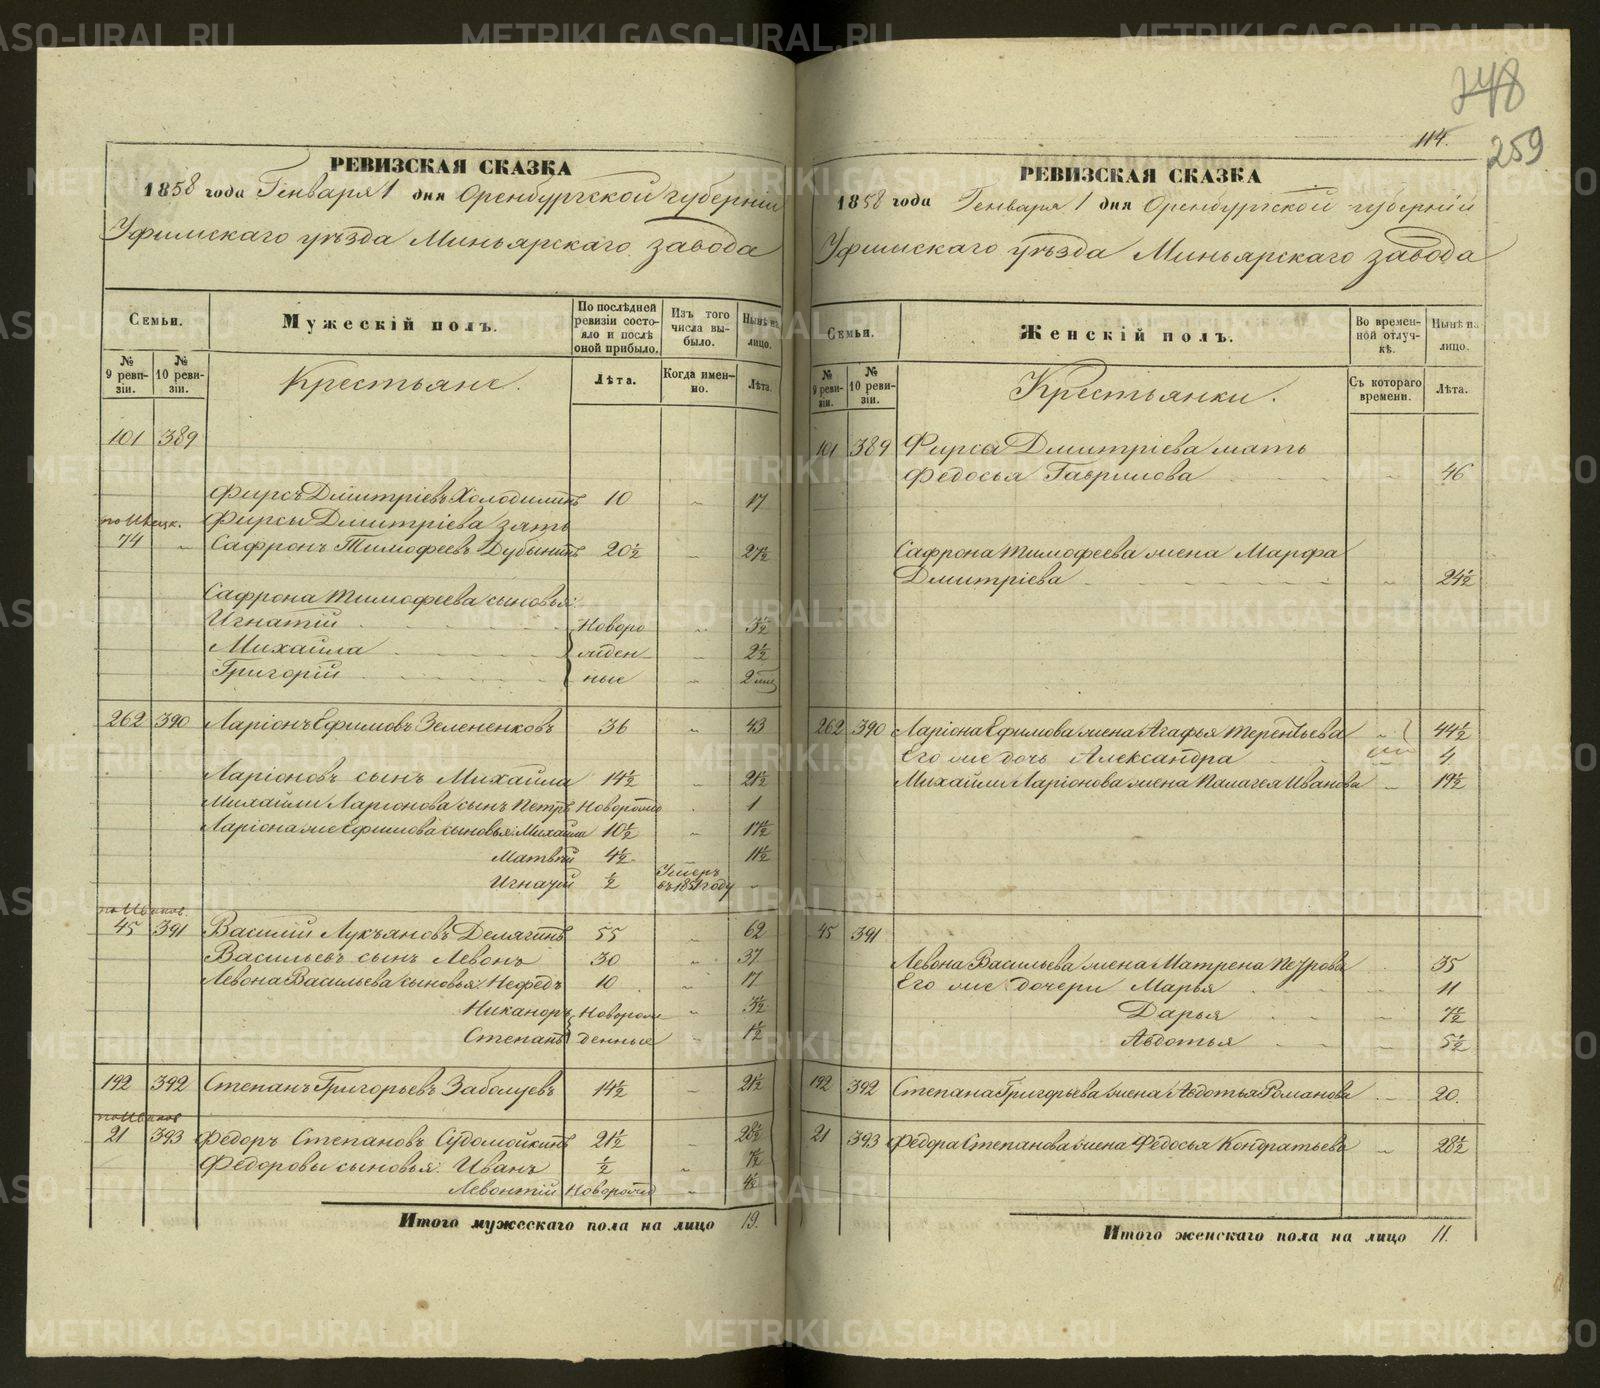 748
114.
259
РЕВИЗСКАЯ СКАЗКА
1858 года Генваря 1 дня Оренбургской губерніи
Уфимскаго уѣзда Миньярскаго завода
Семьи.
Мужескій полъ.
По послѣдней ревизіи состояло и послѣ оной прибыло.
Изъ того числа выбыло.
Нынѣ на лицо.
№ 9 ревизіи.
№ 10 ревизіи.
Крестьяне.
Лѣта.
Когда именно.
Лѣта.
101 389
Фирсъ Дмитріевъ Холодилинъ 10 " 17
Фирсы Дмитріева зять
74 " Сафронъ Тимофеевъ Дубынинъ 20½ " 27½
Сафрона Тимофеева сыновья:
Игнатій Новоро " 3½
Михайла жден " 2½
Григорій ные " 2
262 390 Ларіонъ Ефимовъ Зелененковъ 36 " 43
Ларіоновъ сынъ Михайла 14½ " 21½
Михайлы Ларіонова сынъ Петръ Новорожд 1
Ларіона же Ефимова сыновья: Михайла 10½ " 17½
Матвѣй 4½ 11½
Игнатій ½ Умеръ въ 1851 году "
45 391 Василій Лукьяновъ Делягинъ 55 " 62
Васильевъ сынъ Левонъ 30 " 37
Левона Васильева сыновья: Нефедъ 10 " 17
Никаноръ Новорож " 3½
Степанъ денные " 1½
192 392 Степанъ Григорьевъ Забалуевъ 14½ " 21½
21 393 Федоръ Степановъ Судомойкинъ 21½ " 28½
Федоровы сыновья: Иванъ ½ " 7½
Левонтій Новорожд " 4½
Итого мужескаго пола на лицо 19.
РЕВИЗСКАЯ СКАЗКА
1858 года Генваря 1 дня Оренбургской губерніи
Уфимскаго уѣзда Миньярскаго завода
Семьи.
Женскій полъ.
Во временной отлучкѣ.
Нынѣ на лицо.
№ 9 ревизіи.
№ 10 ревизіи.
Крестьянки.
Съ котораго времени.
Лѣта.
101 389 Фирсы Дмитріева мать
Федосья Гаврилова " 46
Сафрона Тимофеева жена Марфа
Дмитріева " 24½
262 390 Ларіона Ефимова жена Агафья Терентьева " 44½
Его же дочь Александра " 4
Михайлы Ларіонова жена Палагея Иванова " 19½
45 391
Левона Васильева жена Матрена Петрова 35
Его же дочери Марья " 11
Дарья " 7½
Авдотья " 5½
192 392 Степана Григорьева жена Авдотья Романова " 20.
21 393 Федора Степанова жена Федосья Кондратьева " 28½
Итого женскаго пола на лицо 11.
METRIKI.GASO-URAL.RU